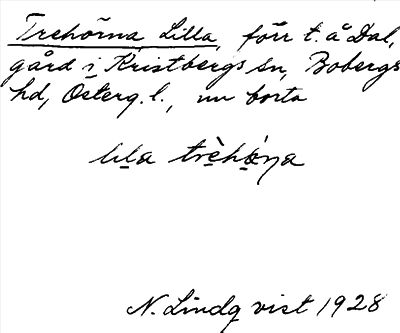 Trehörna Lilla, förr t. å Dal,
gård i Kristbergs sn, Bobergs
hd, Österg. l., nu borta
lıla
N. Lindqvist 1928